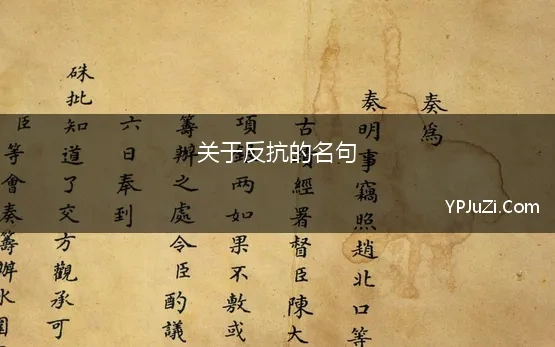 关于反抗的名句
YPJuZi.Com
奏為
奏明事竊照趙北口等
古經署督臣陳大
項两如果不敷或
籌辦之處令臣酌議
六日奉到
硃批知道了交方觀承可
臣等會奏籌辦水圍